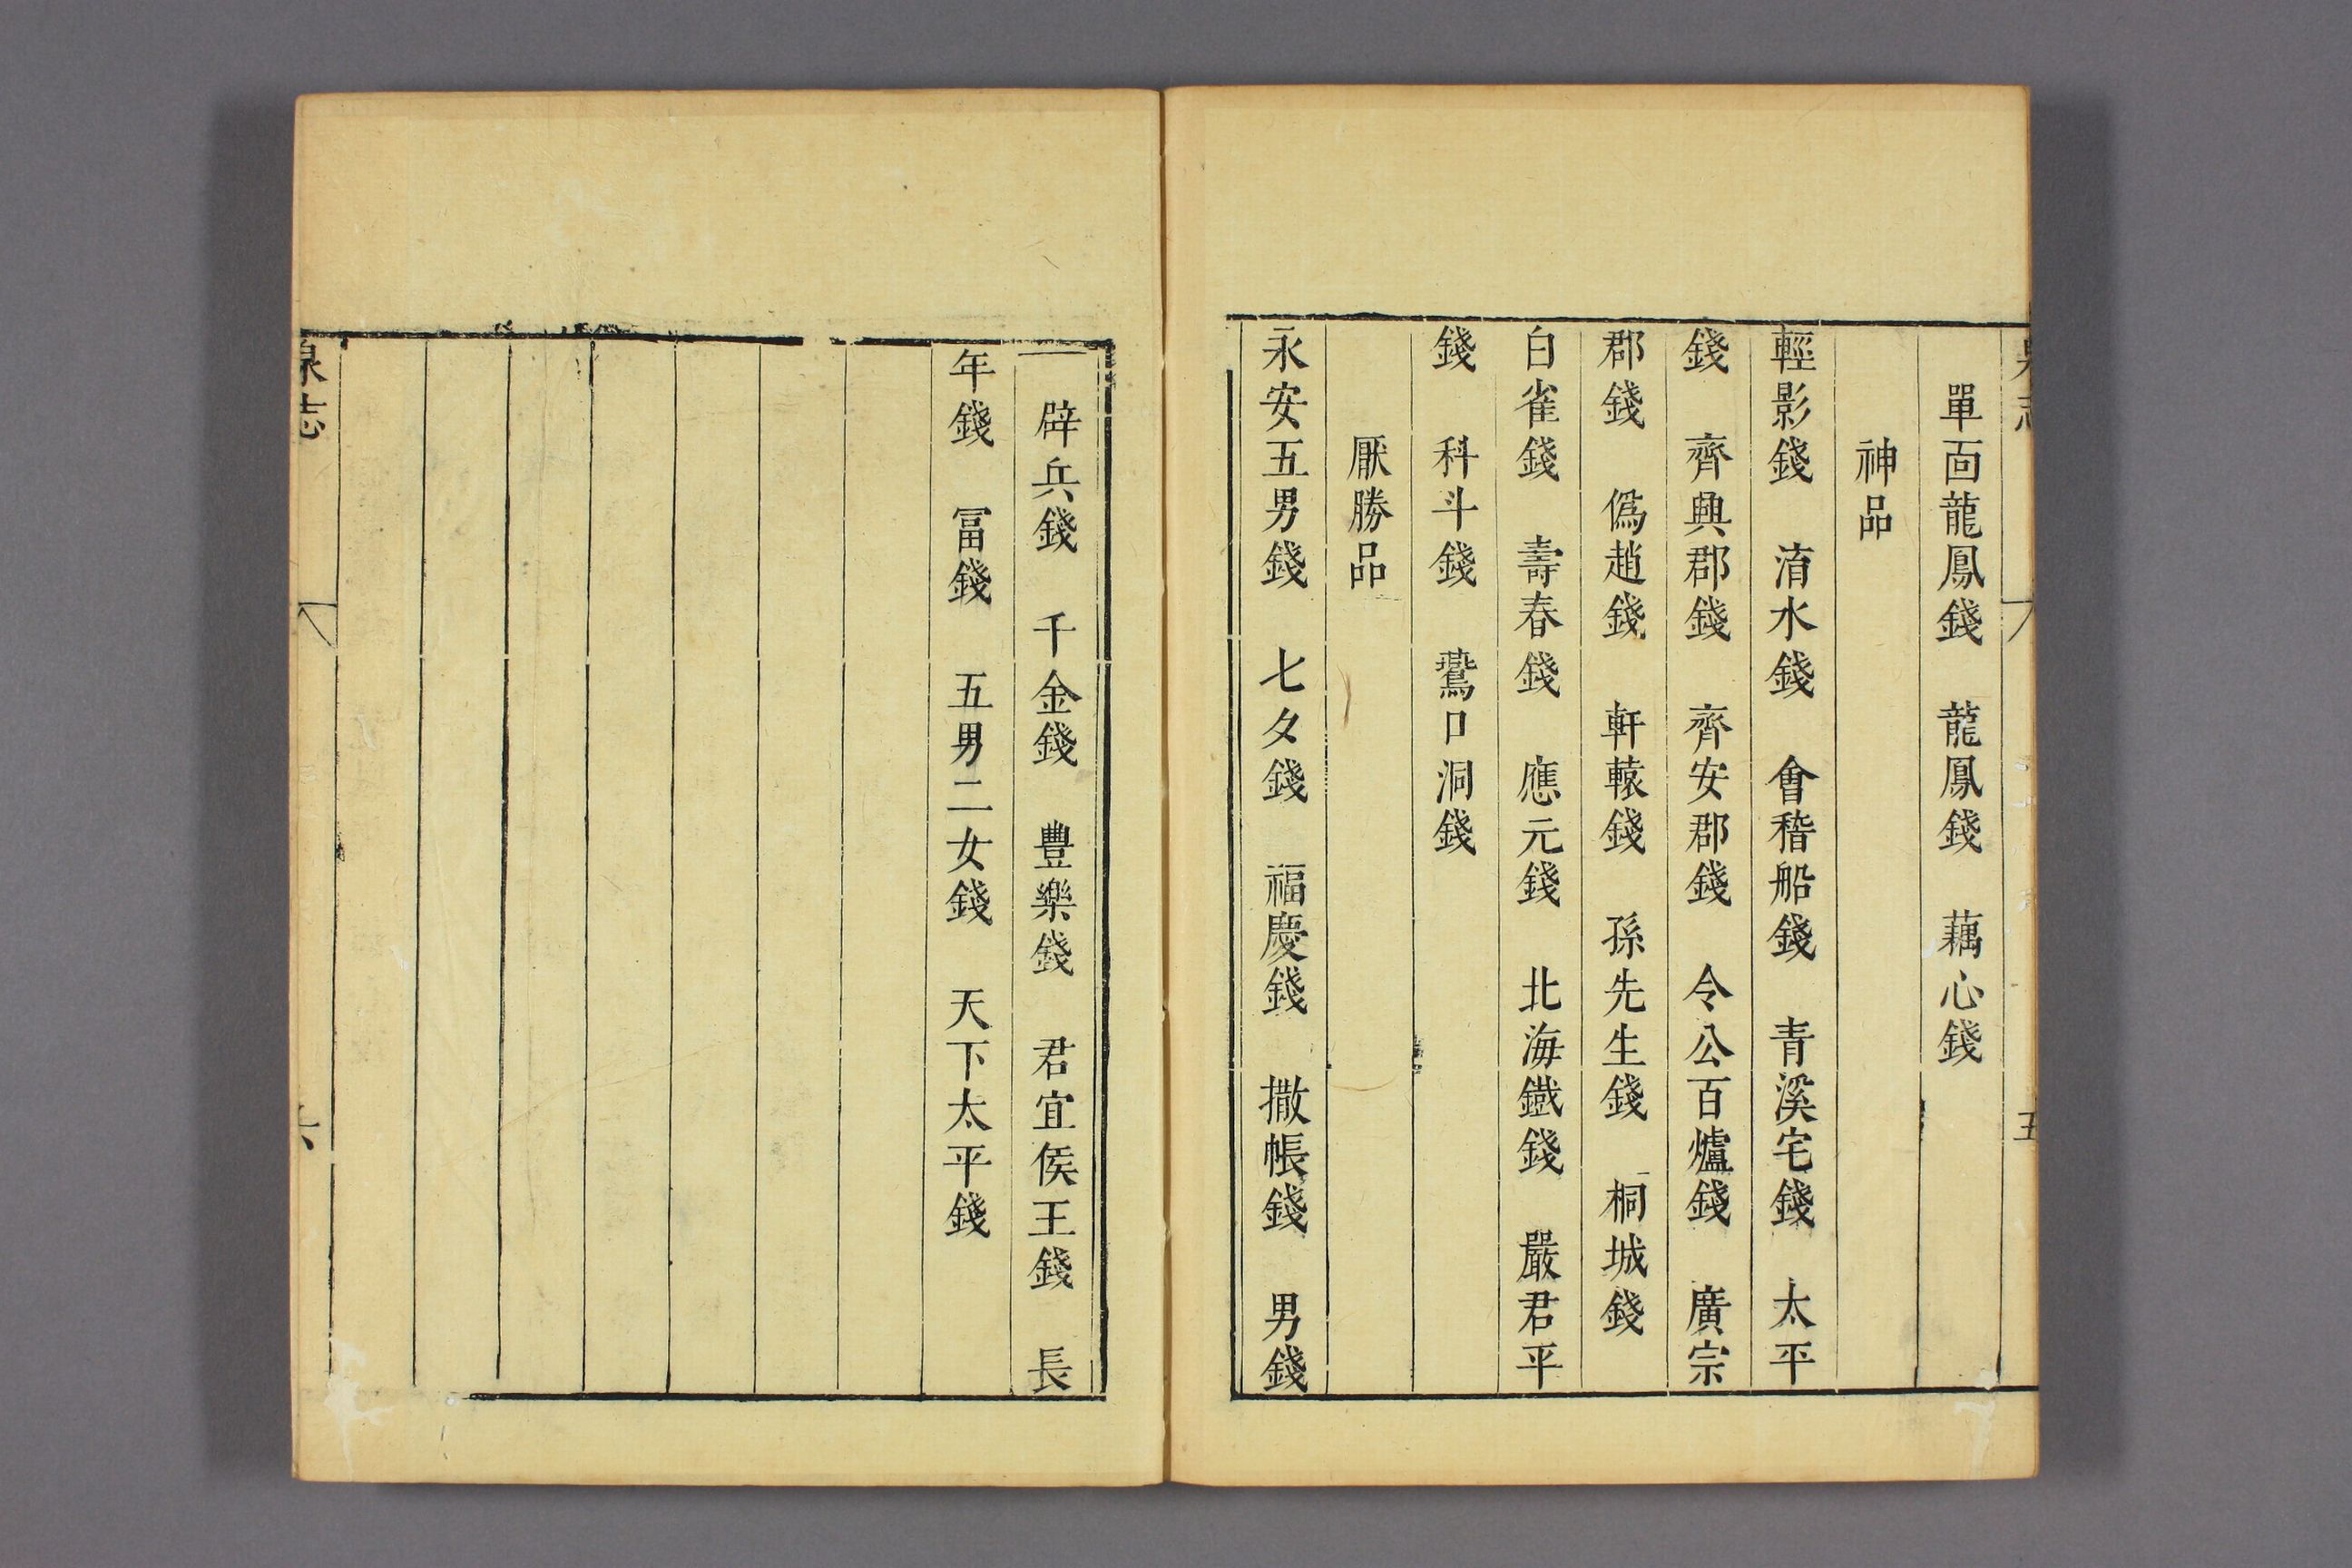 泉志 五
單面龍鳳錢 龍鳳錢 藕心錢
神品
輕影錢 淯水錢 會稽船錢 青溪宅錢 太平
錢 齊興郡錢 齊安郡錢 令公百爐錢 廣宗
郡錢 僞趙錢 軒轅錢 孫先生錢 桐城錢
白雀錢 壽春錢 應元錢 北海鐵錢 嚴君平
錢 科斗錢 鵞口洞錢
厭勝品
永安五男錢 七夕錢 福慶錢 撒帳錢 男錢
辟兵錢 千金錢 豊樂錢 君宜侯王錢 長
年錢 冨錢 五男二女錢 天下太平錢
泉志 六